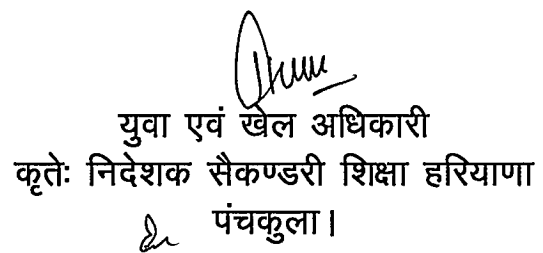 युवा एवं खेल अधिकारी
कृतेः निदेशक सैकण्डरी शिक्षा हरियाणा
पंचकुला।